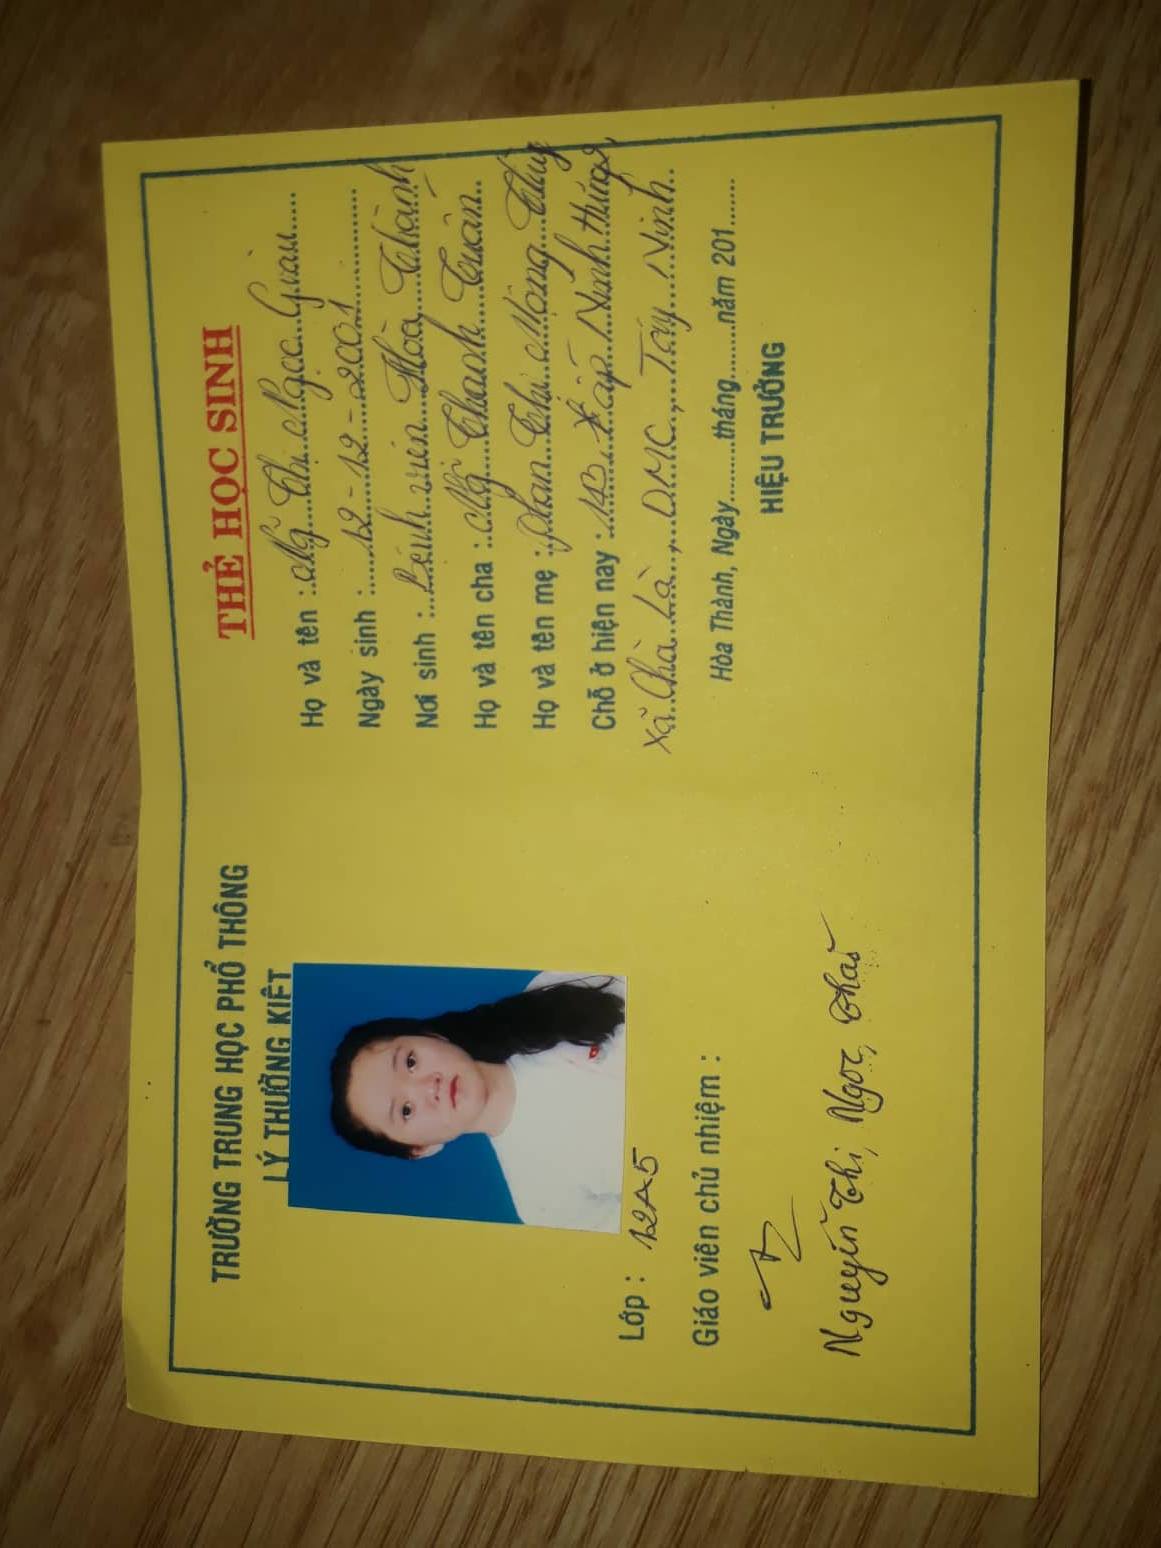 TRƯỜNG TRUNG HỌC PHỔ THÔNG
LÝ THƯỜNG KIỆT
Lớp : 12A5
Giáo viên chủ nhiệm :
Nguyễn Thị Ngọc Thảo
THẺ HỌC SINH
Họ và tên : Thị Ngọc Giàu
Ngày sinh : 12-12-2001
Nơi sinh : Bệnh viện Hòa Thành
Họ và tên cha : Thanh Tuấn
Họ và tên mẹ : Phan Thị Mộng
Chỗ ở hiện nay : ấp Ninh
Xã Chà Là, DMC, Tây Ninh
Hòa Thành, Ngày.........tháng.........năm 201......
HIỆU TRƯỞNG